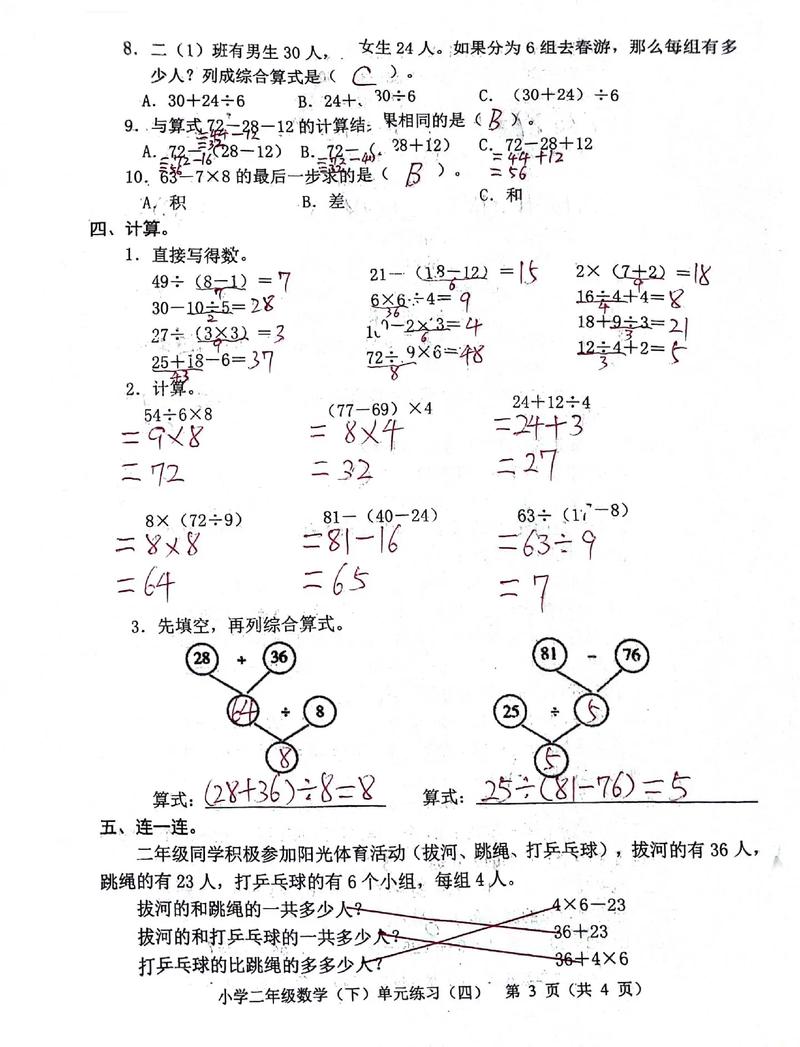 8. 二（1）班有男生 30 人，女生 24 人。如果分为 6 组去春游，那么每组有多
少人？列成综合算式是（ C ）。
A. 30+24÷6 B. 24+30÷6 C. （30+24）÷6
9. 与算式 72－28－12 的计算结果相同的是（ B ）。
=44-12
=32
A. 72－（28－12） B. 72－（28＋12） C. 72－28＋12
=72-16 =72-40 =44+12
=56 =32 =56
10. 63－7×8 的最后一步求的是（ B ）。
A. 积 B. 差 C. 和
四、计算。
1. 直接写得数。
49÷（8－1）=7 21－（18－12）=15 2×（7＋2）=18
7 6 9
30－10÷5=28 6×6÷4=9 16÷4＋4=8
2 36 4
27÷（3×3）=3 10－2×3=4 18＋9÷3=21
9 6 3
25＋18－6=37 72÷9×6=48 12÷4＋2=5
43 8 3
2. 计算。
54÷6×8 （77－69）×4 24＋12÷4
=9×8 =8×4 =24+3
=72 =32 =27
8×（72÷9） 81－（40－24） 63÷（17－8）
=8×8 =81-16 =63÷9
=64 =65 =7
3. 先填空，再列综合算式。
28 + 36 81 － 76
64 ÷ 8 25 ÷ 5
8 5
算式：(28+36)÷8=8 算式：25÷(81-76)=5
五、连一连。
二年级同学积极参加阳光体育活动（拔河、跳绳、打乒乓球），拔河的有 36 人，
跳绳的有 23 人，打乒乓球的有 6 个小组，每组 4 人。
拔河的和跳绳的一共多少人？ 4×6－23
拔河的和打乒乓球的一共多少人？ 36＋23
打乒乓球的比跳绳的多多少人？ 36＋4×6
小学二年级数学（下）单元练习（四） 第 3 页（共 4 页）